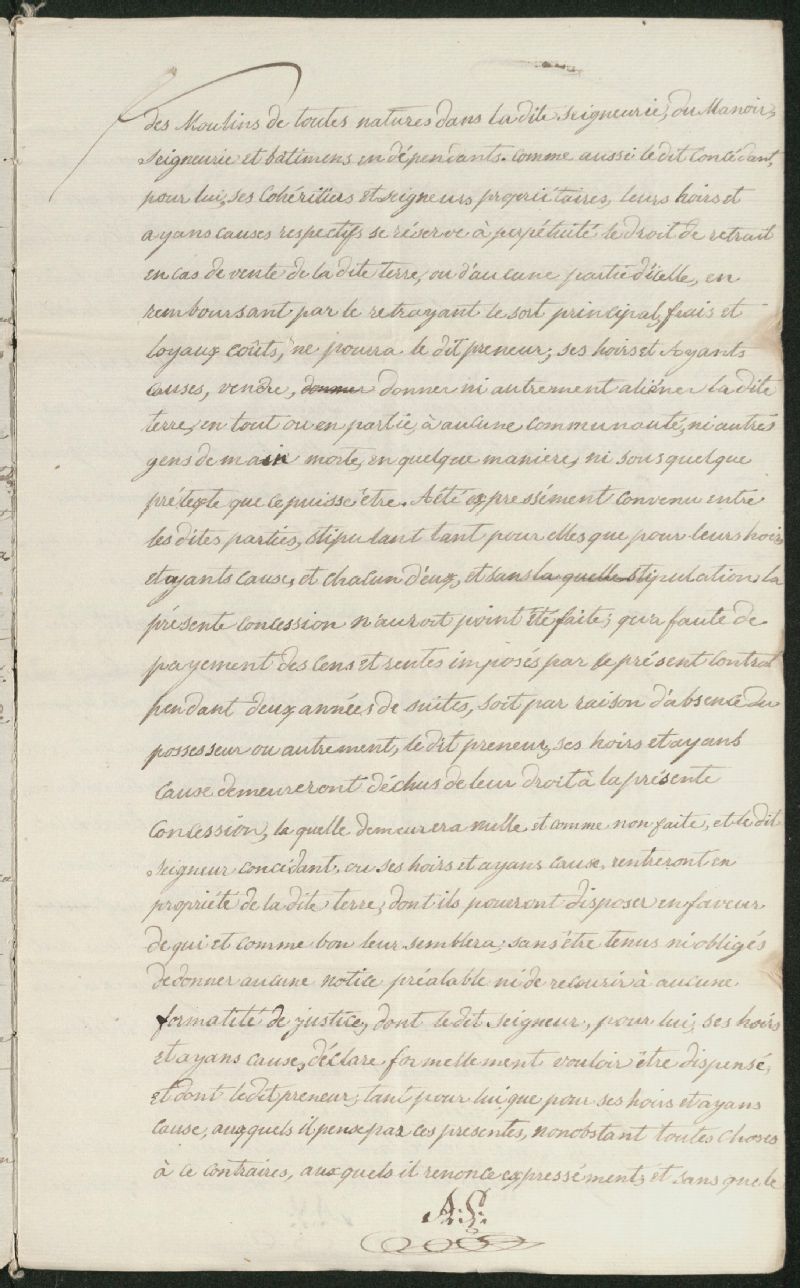 des Moulins de toutes natures dans la dite seigneurie, du Manoir,
seigneurie et bâtimens en dépendants. comme aussi le dit Concédant,
pour lui, ses Cohéritiers et seigneurs propriétaires, leurs hoirs et
ayans causes respectifs se réserve à perpétuité le droit de retrait
en cas de vente de la dite terre, ou d'aucune partie d'icelle, en
remboursant par le retrayant le sort principal, frais et
loyaux coûts, ne pourra le dit preneur, ses hoirs et Ayants
causes, vendre, donner donner ni autrement aliéner la dite
terre, en tout ou en partie, à aucune communauté, ni autres
gens de main morte, en quelque maniere, ni sous quelque
prétexte que ce puisse être. A été expressément convenu entre
les dites parties, stipulant tant pour elles que pour leurs hoirs,
et ayants cause, et chacun d'eux, et sans la quelle stipulation la
présente concession n'auroit point été faite; qu'a faute de
payement des Cens et rentes imposés par le présent Contrat
pendant deux années de suites, soit par raison d'absence du
possesseur ou autrement, le dit preneur, ses hoirs et ayans
cause demeureront déchus de leur droit à la présente
Concession, la quelle demeurera nulle et comme non faite, et le dit
Seigneur concédant, ou ses hoirs et ayans cause, rentreront en
propriété de la dite terre, dont ils pourront disposer en faveur
de qui et comme bon leur semblera, sans être tenus ni obligés
de donner aucune notice préalable ni de recourir à aucune
formalité de justice, dont le dit Seigneur, pour lui, ses hoirs
et ayans cause, déclare formellement vouloir être dispensé,
et dont le dit preneur, tant pour lui que pour ses hoirs et ayans
cause, auxquels il pense par ces presentes, nonobstant toutes choses
à ce contraires, auxquels il renonce expressément, et sans que le
A.L.